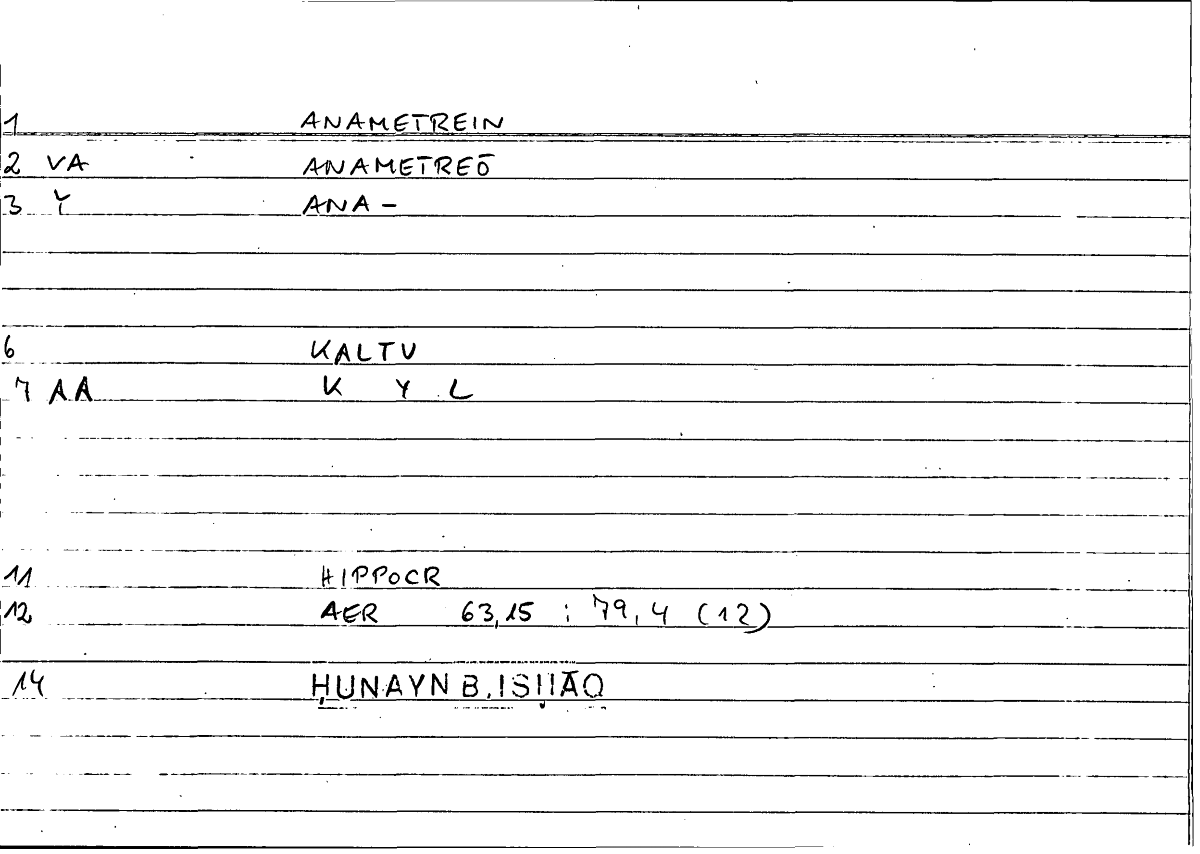 1 ANAMETREIN
2 VA ANAMETREŌ
3 Y ANA-
6 KALTU
7 AA K Y L
11 HIPPOCR
12 AER 63,15 ; 79,4 (12)
14 ḤUNAYN B. ISḤĀQ